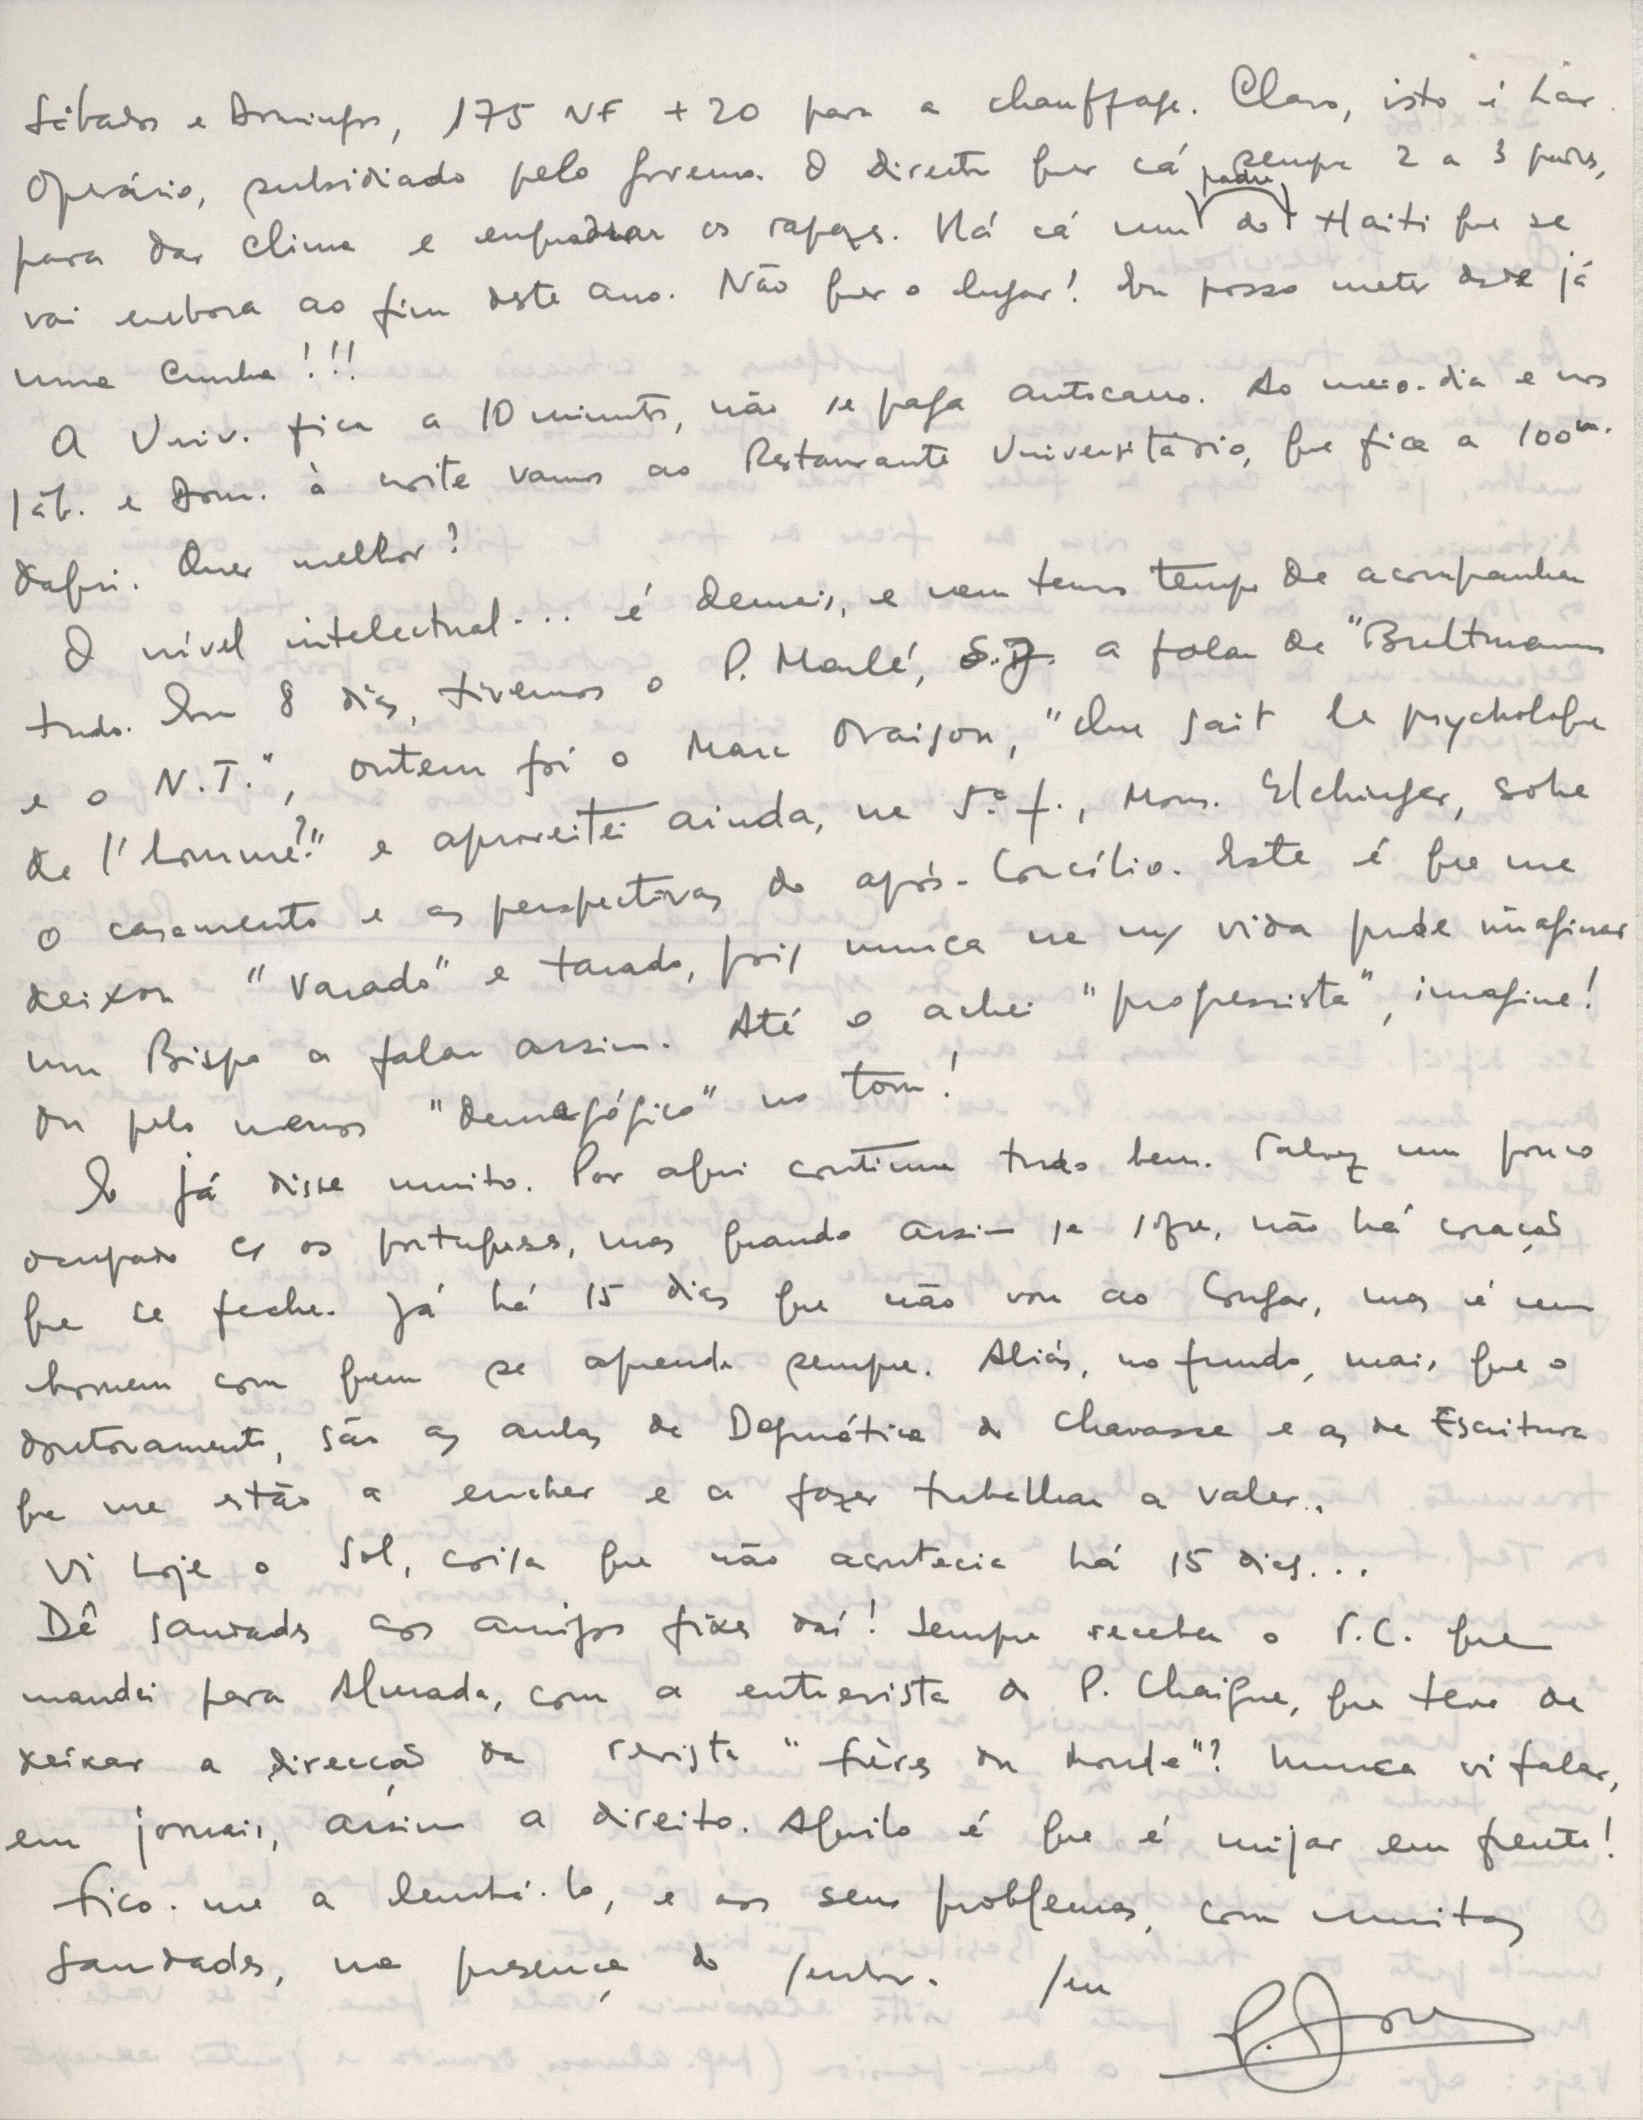 Sábados e Domingos, 175 NF + 20 para a chauffage. Claro, isto é Lar
Operário, subsidiado pelo governo. O director quer cá sempre 2 a 3 padres,
para dar clima e enquadrar os rapazes. Há cá um padre do Haiti que se
vai embora ao fim deste ano. Não quer o lugar? Eu posso meter desde já
uma cunha!!!
A Univ. fica a 10 minutos, não se paga autocarro. Ao meio-dia e nos
Sáb. e Dom. à noite vamos ao Restaurante Universitário, que fica a 100m.
daqui. Quer melhor?
O nível intelectual... é demais, e nem temos tempo de acompanhar
tudo. Em 8 dias, tivemos o P. Marlé, S.J. a falar de "Bultmann
e o N.T.", ontem foi o Marc Oraison, "Que sait le psychologue
de l'homme?" e aproveitei ainda, na 5ª f., Mons. Elchinger, sobre
o casamento e as perspectivas do após-Concílio. Este é que me
deixou "varado" e tarado, pois nunca na m/ vida pude imaginar
um Bispo a falar assim. Até o achei "progressista", imagine!
Ou pelo menos "demagógico" no tom!
E já disse muito. Por aqui continua tudo bem. Talvez um pouco
ocupado c/ os portugueses, mas quando assim se sofre, não há coração
que se feche. Já há 15 dias que não vou ao Congar, mas é um
homem com quem se aprende sempre. Aliás, no fundo, mais que o
doutoramento, são as aulas de Dogmática do Chavasse e as de Escritura
que me estão a encher e a fazer trabalhar a valer..
Vi hoje o Sol, coisa que não acontecia há 15 dias...
Dê saudades aos amigos fixes daí! Sempre recebeu o T.C. que
mandei para Almada, com a entrevista do P. Chaigne, que teve de
deixar a direcção da revista "Frères du Monde"? Nunca vi falar,
em jornais, assim a direito. Aquilo é que é mijar em frente!
Fico-me a lembrá-lo, e aos seus problemas, com muitas
saudades, na presença do Senhor. Seu